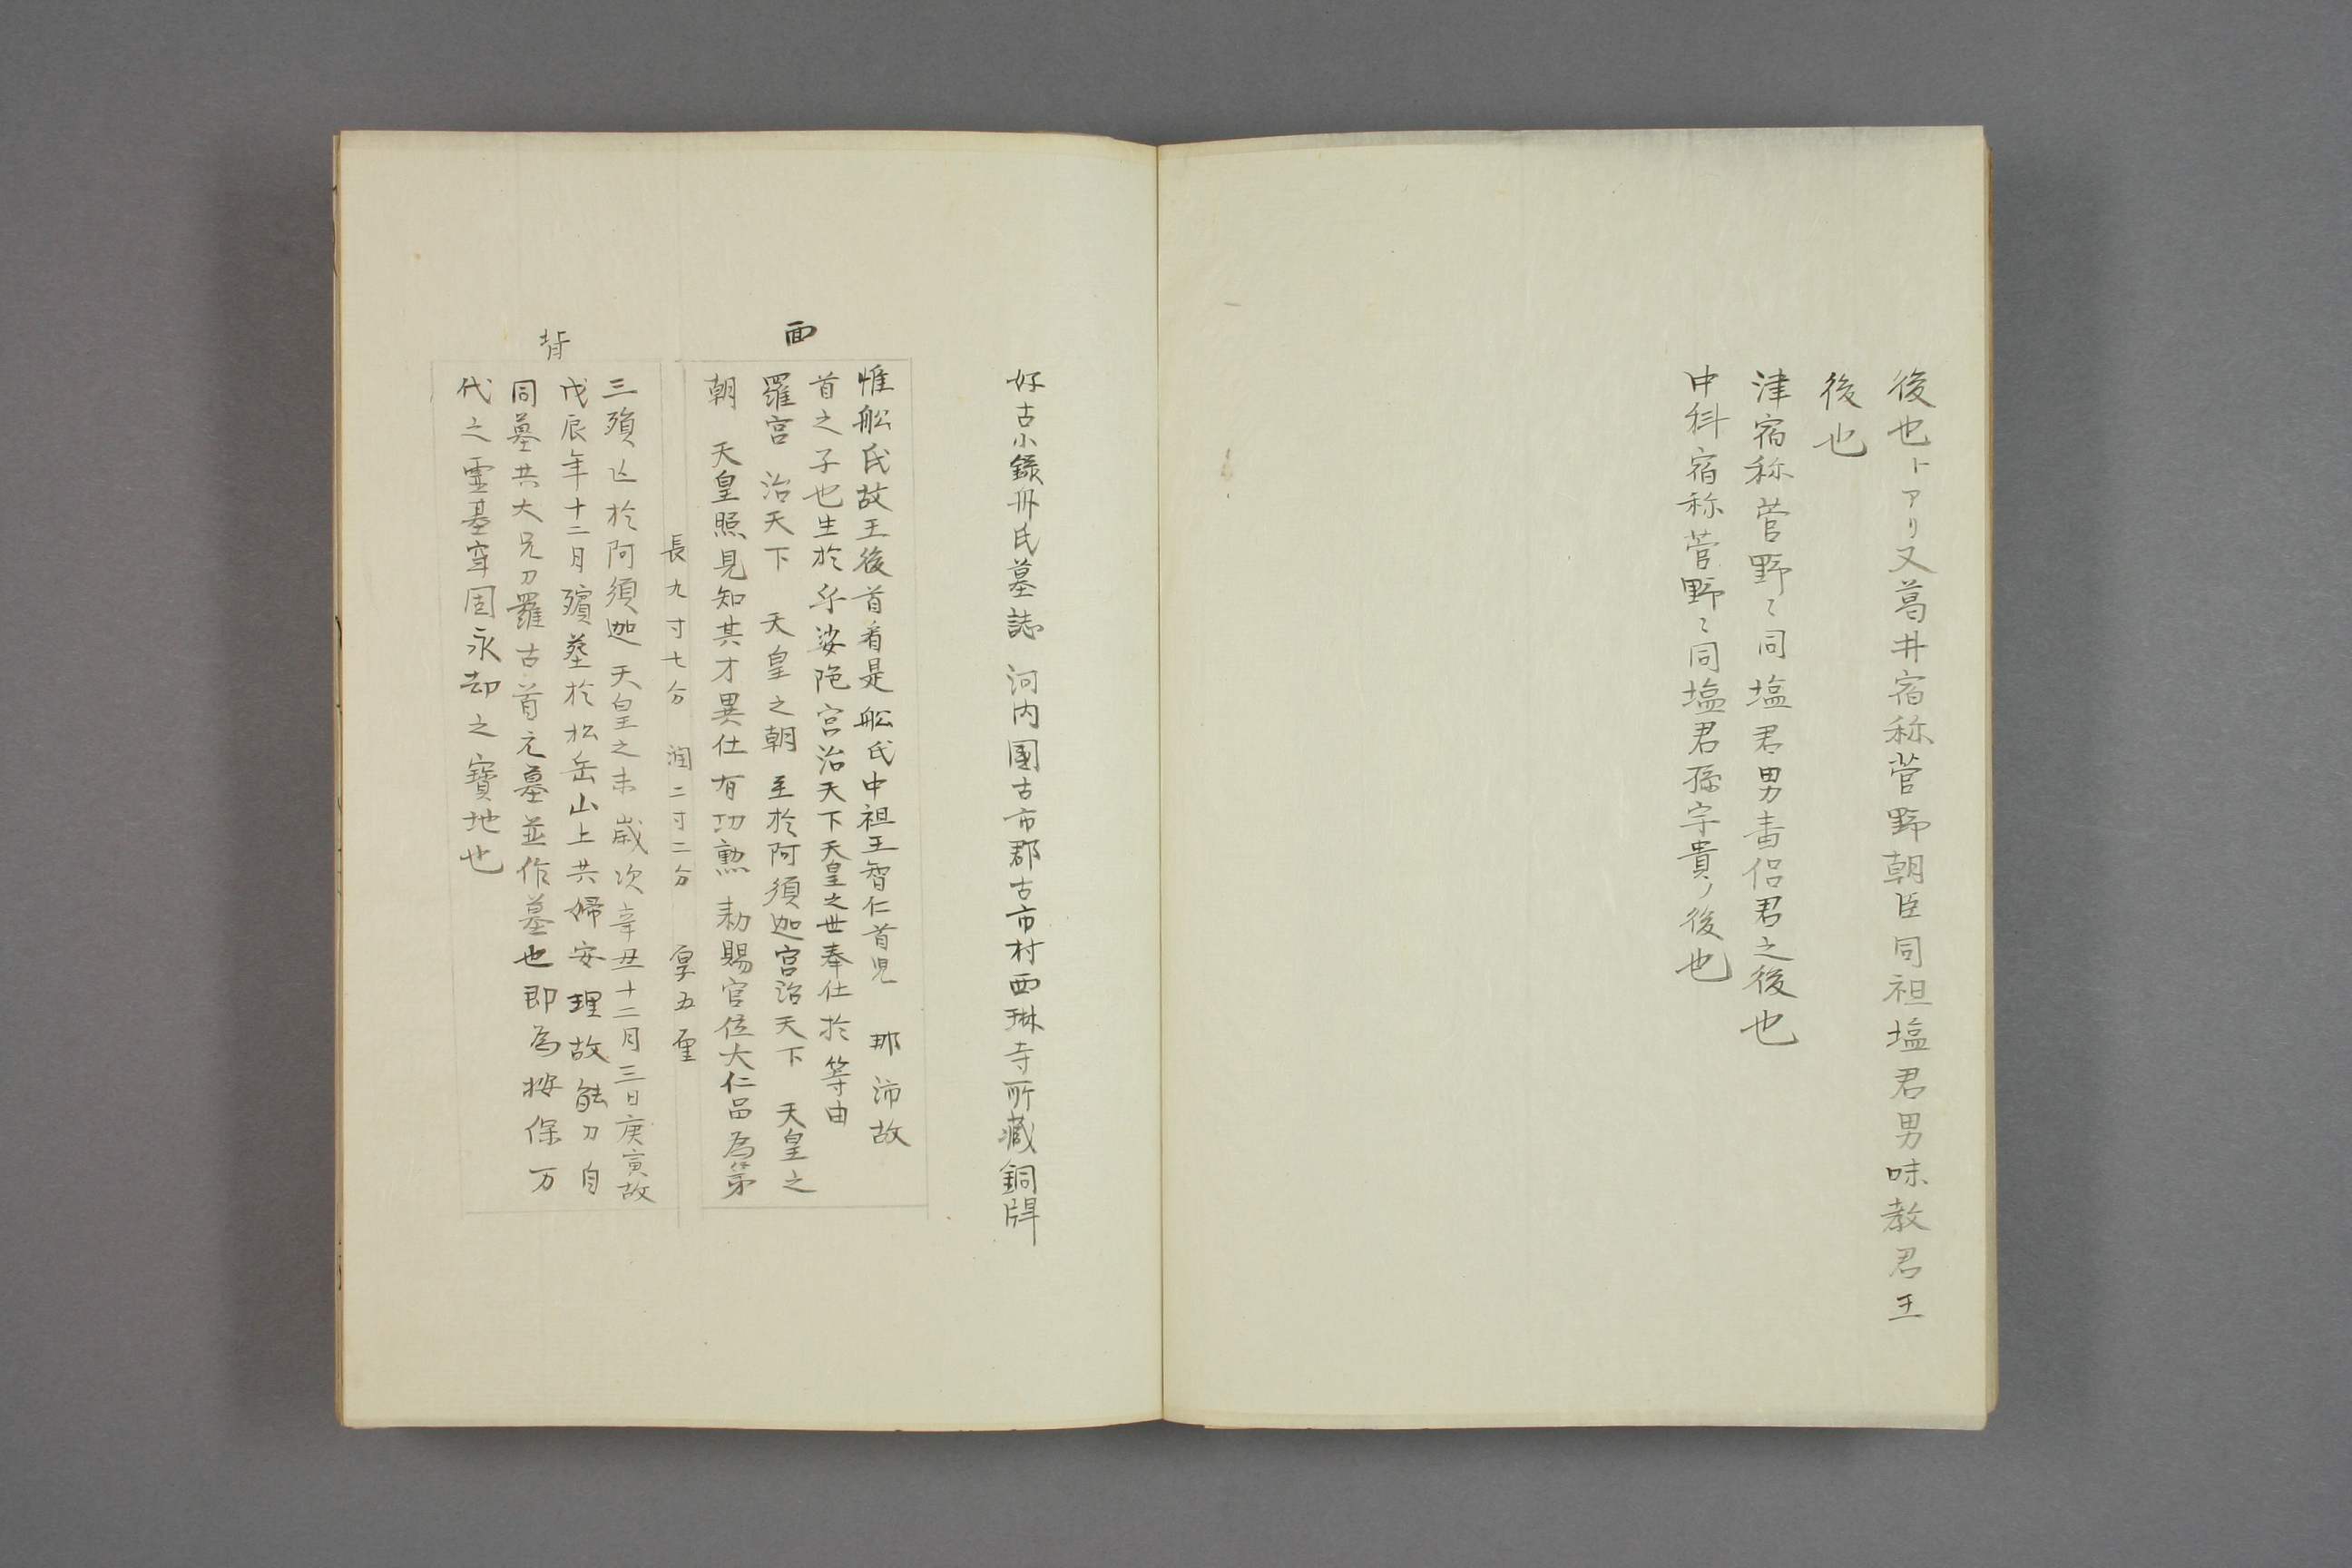 後也トアリ又葛井宿称菅野朝臣同祖塩君男味散君王
後也
津宿称菅野〻同塩君男麦侶君之後也
中科宿称菅野〻同塩君孫宇貴ノ後也
好古小錄舟氏墓誌 河内國古市郡古市村西琳寺所藏銅牌
面
惟舩氏故王後首者是舩氏中祖王智仁首児 那沛故
首之子也生於乎娑陁宮治天下天皇之世奉仕於等由
羅宮 治天下 天皇之朝至於阿須迦宮治天下 天皇之
朝 天皇照見知其才異仕有功勲 勅賜官位大仁品為第
長九寸七分 濶二寸二分 厚五厘
背
三殞亡於阿須迦天皇之末歳次辛丑十二月三日庚寅故
戊辰年十二月殯葬於松岳山上共婦安理故能刀自
同墓共大兄刀羅古首之墓並作墓也即為按保万
代之霊基牢固永劫之寶地也